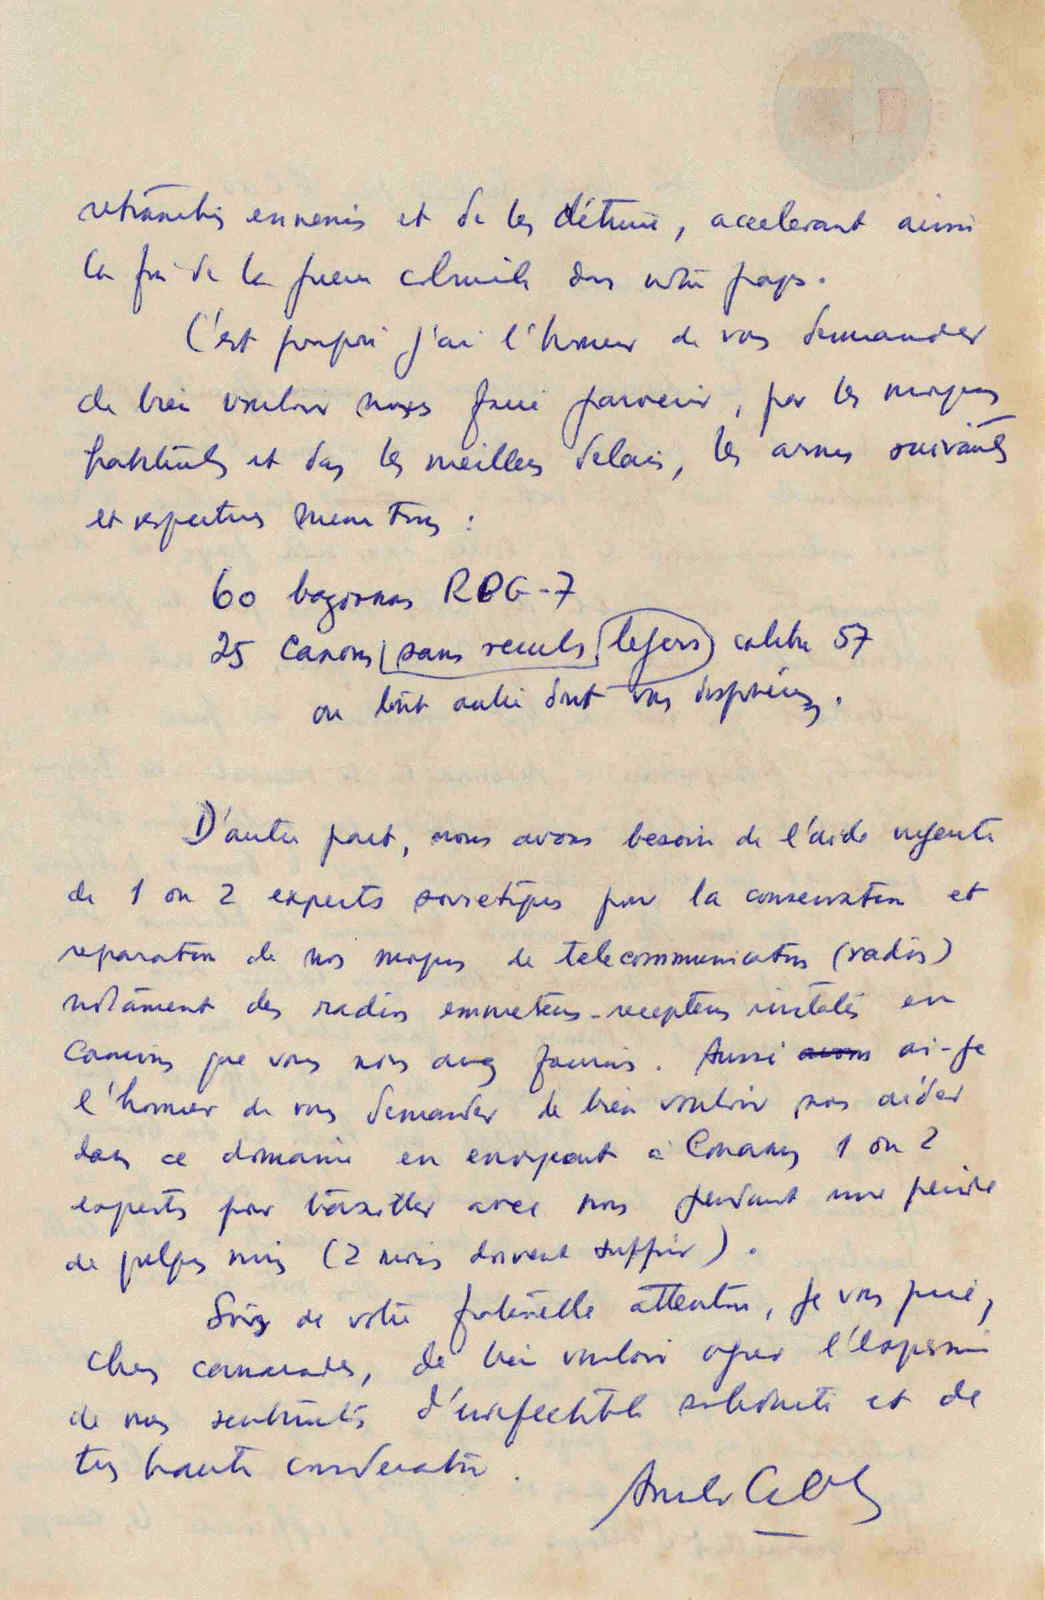 retranchés ennemis et de les détruire, accelerant ainsi
la fin de la guerre coloniale dans notre pays.
C'est pourquoi j'ai l'honneur de vous demander
de bien vouloir nous faire parvenir, par les moyens
habituels et dans les meilleurs delais, les armes suivantes
et respectives munitions :
60 bazookas RPG-7
25 canons sans reculs legers calibre 57
ou tout autre dont vous disposeriez.
D'autre part, nous avons besoin de l'aide urgente
de 1 ou 2 experts sovietiques pour la conservation et
reparation de nos moyens de telecommunications (radios)
notament des radios emmeteurs-recepteurs instalés en
camions que vous nous avez fournis. Aussi avons ai-je
l'honneur de vous demander de bien vouloir nous aider
dans ce domaine en envoyant à Conakry 1 ou 2
experts pour travailler avec nous pendant une periode
de quelques mois (2 mois doivent suffir).
de votre fraternelle attention, je vous prie,
Chers camarades, de bien vouloir agréer l'expression
de nos sentiments d'indefectible solidarité et de
très haute consideration.
Amilcar Cabral